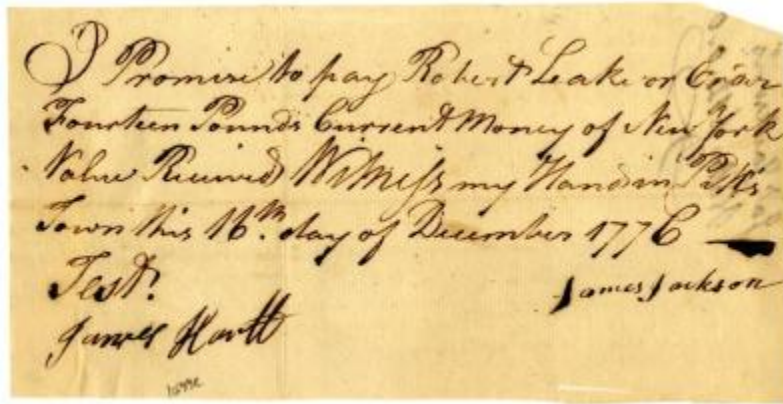 I Promise to pay Robert Leake or Order
Fourteen Pounds Current Money of New York
Value Received Witness my Hand in
Town this 16th. day of December 1776
Test.
James Jackson
James